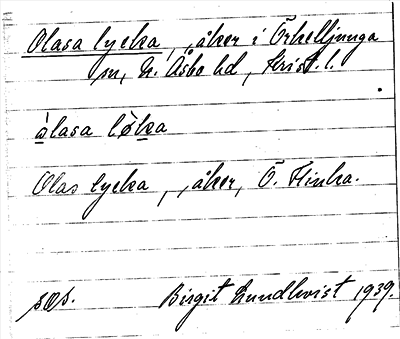 Olasa lycka, åker i Örkelljunga
sn, N. Åsbo hd, Krist. l.
àlasa løka
Olas lycka, åker, Ö. Flinka.
sos. Birgit Lundkvist 1939.